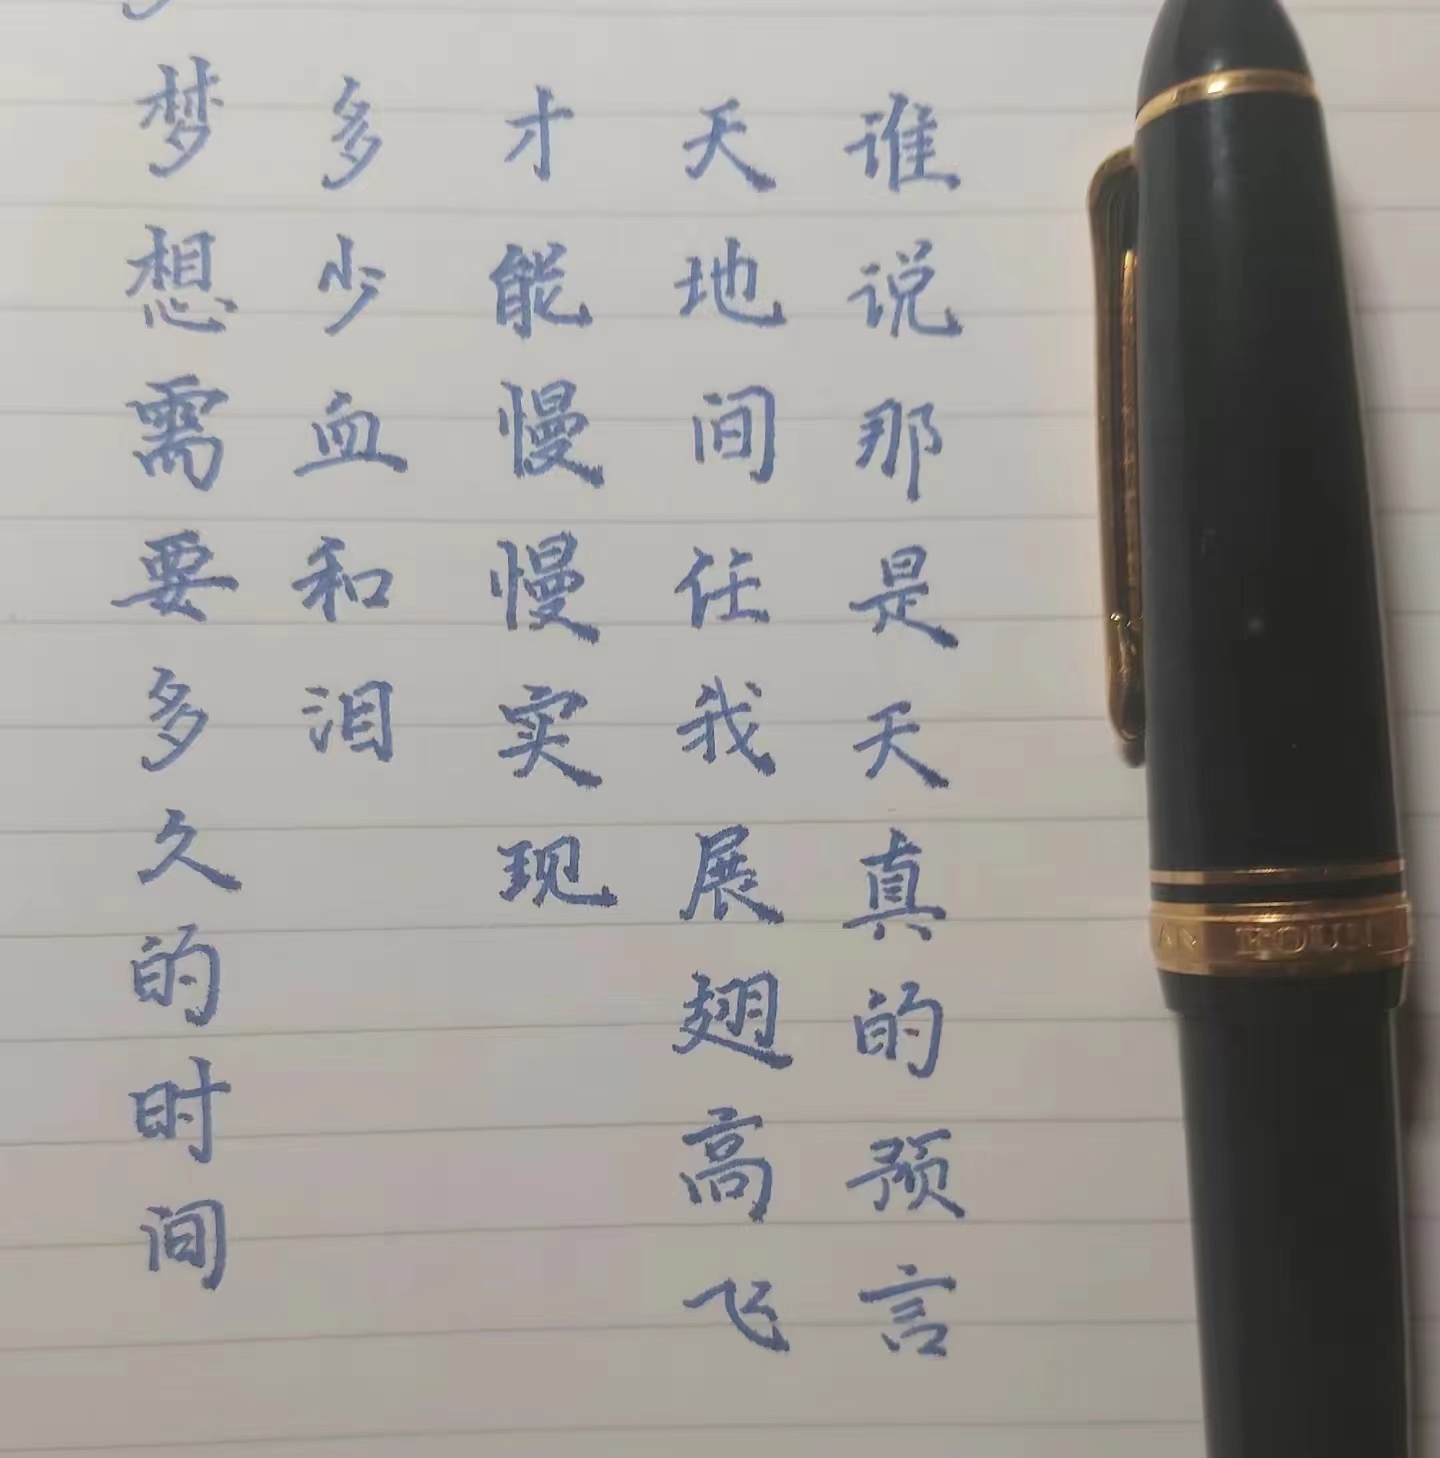 梦想需要多久的时间
多少血和泪
才能慢慢实现
天地间任我展翅高飞
谁说那是天真的预言